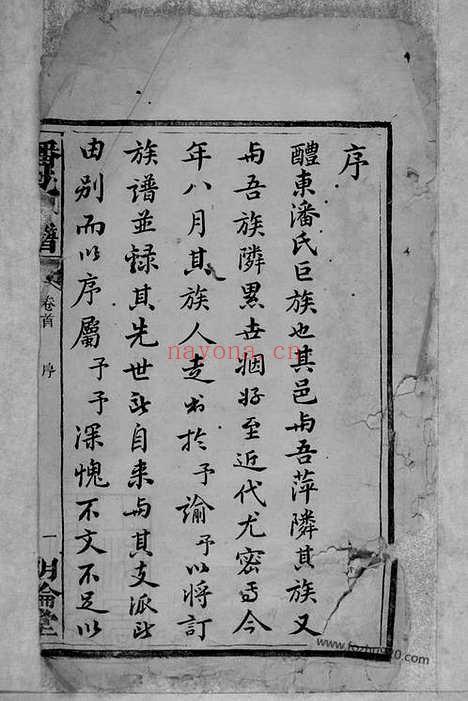 序
醴東潘氏巨族也其邑与吾萍隣其族又
与吾族隣累世姻好至近代尤密焉今
年八月其族人走书於予諭予以將訂
族譜並録其先世所自来与其支派所
由别而以序屬予予深愧不文不足以
潘氏族譜
卷首
序
一
明倫堂
nayona.cn
www.fozhu920.com